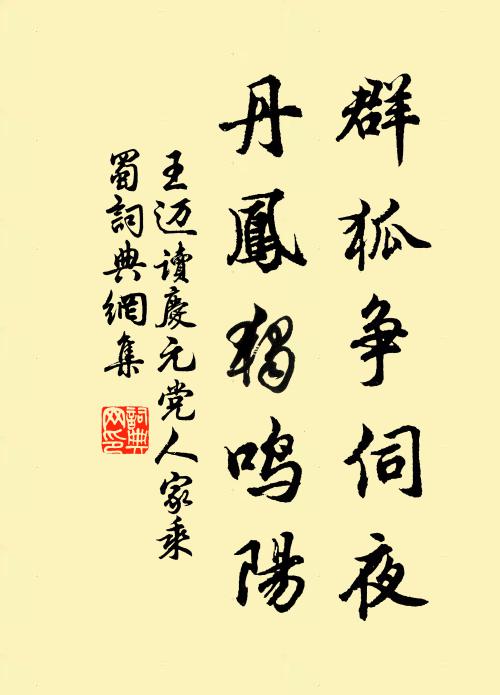 群狐争伺夜
丹鳳獨鳴陽
王迈讀慶元党人家乘
蜀詞典網集
詞典
网印